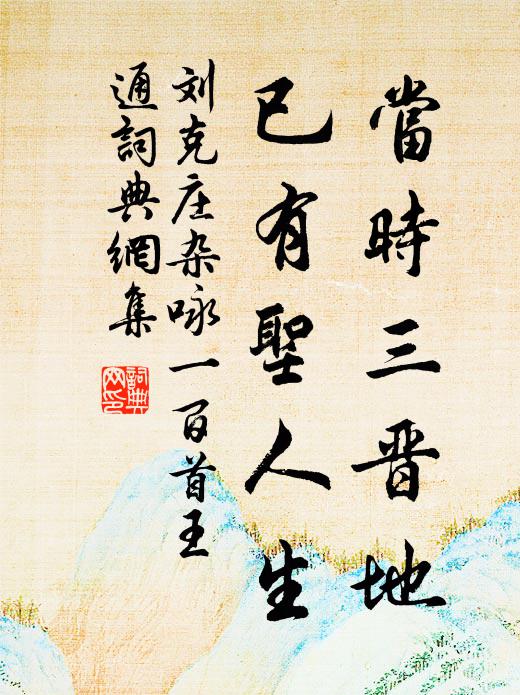 當時三晋地
已有聖人生
刘克庄杂咏一百首王
通詞典網集
詞典
网印